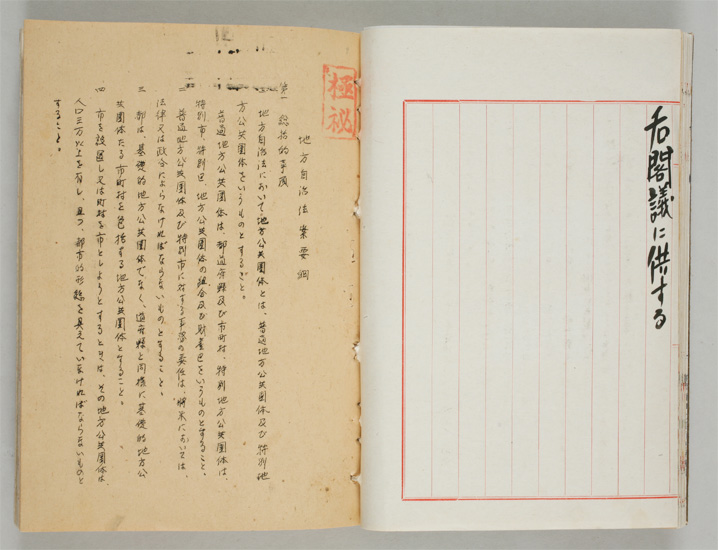 右閣議に供する
極秘
地方自治法案要綱
第一 総括的事項
一 地方自治法において地方公共團体とは、普通地方公共團体及び特別地
方公共團体をいうものとすること。
普通地方公共團体は、都道府縣及び市町村、特別地方公共團体は、
特別市、特別区、地方公共團体の組合及び財産区をいうものとすること。
二 普通地方公共團体及び特別市に対する事務の委任は、將来においては、
法律又は政令によらなければならないものとすること。
三 都は、基礎的地方公共團体でなく、道府縣と同様に基礎的地方公
共團体たる市町村を包括する地方公共團体とすること。
四 市を設置し又は町村を市としようとするときは、その地方公共團体は、
人口三万以上を有し、且つ、都市的形態を具えていなければならないものと
すること。